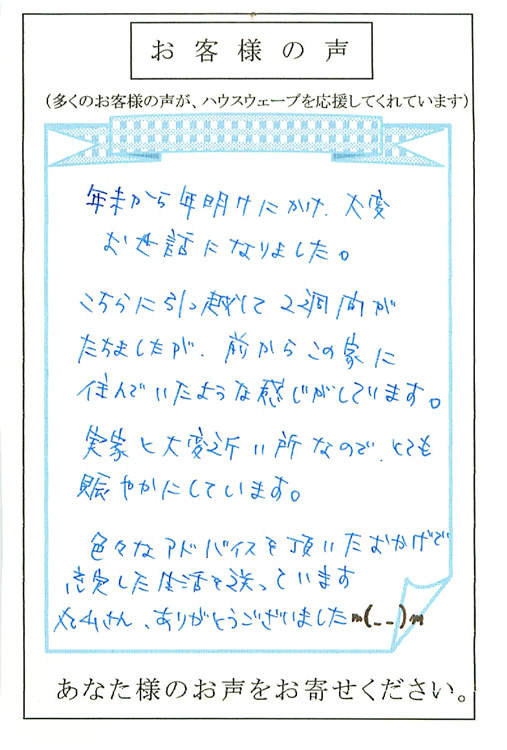 お客様の声
(多くのお客様の声が、ハウスウェーブを応援してくれています)
年末から年明けにかけ、大変
お世話になりました。
こちらに引っ越して2週間が
たちましたが、前からこの家に
住んでいたような感じがしています。
実家と大変近い所なので、とても
賑やかにしています。
色々なアドバイスを頂いたおかげで
した生活を送っています
さん、ありがとうございましたm(__)m
あなた様のお声をお寄せください。